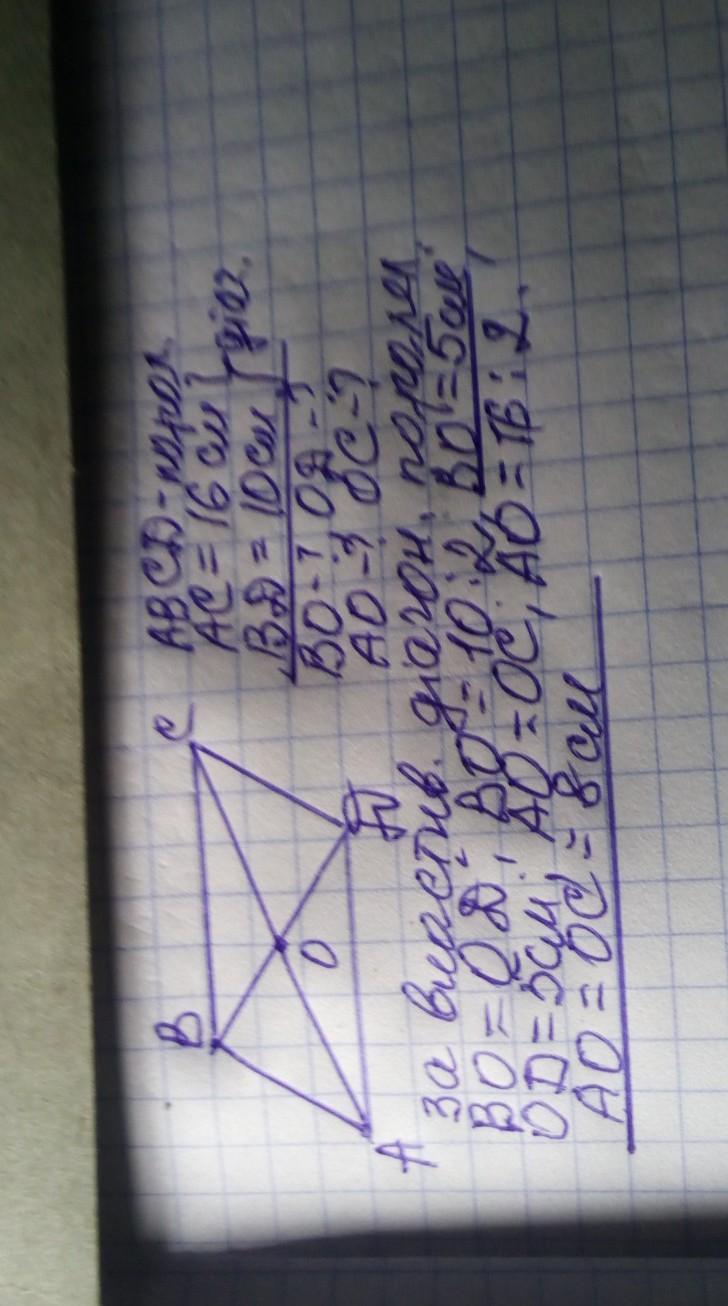 B
C
O
A
Д
ABCД - парал.
AC = 16 см } діаг.
BД = 10 см
BO - ? OД - ?
AO - ? OC - ?
За властив. діагон. паралел.
BO = OД, BO = 10 : 2, BO = 5 см,
OД = 5 см; AO = OC, AO = 16 : 2.
AO = OC = 8 см